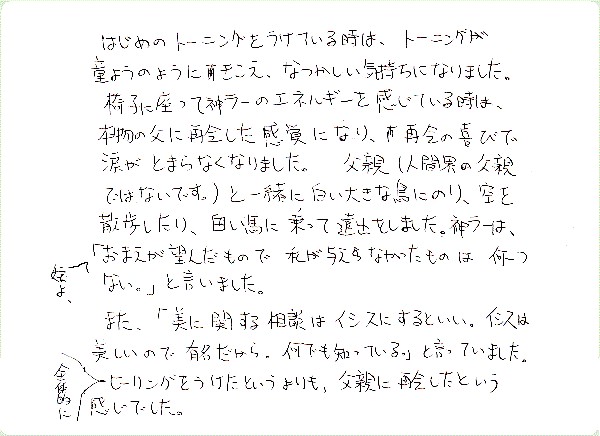 はじめのトーニングをうけている時は、トーニングが
童ようのように聞きこえ、なつかしい気持ちになりました。
椅子に座って神ラーのエネルギーを感じている時は、
本物の父に再会した感覚になり、再会の喜びで
涙がとまらなくなりました。 父親（人間界の父親
ではないです。）と一緒に白い大きな鳥にのり、空を
散歩したり、白い馬に乗って遠出をしました。神ラーは、
「おまえが望んだもので 私が与えなかったものは 何一つ
ない。」と言いました。
娘よ、
また、「美に関する相談はイシスにするといい。イシスは
美しいので有名だから。何でも知っている。」と言っていました。
全体的に
ヒーリングをうけたというよりも、父親に再会したという
感じでした。